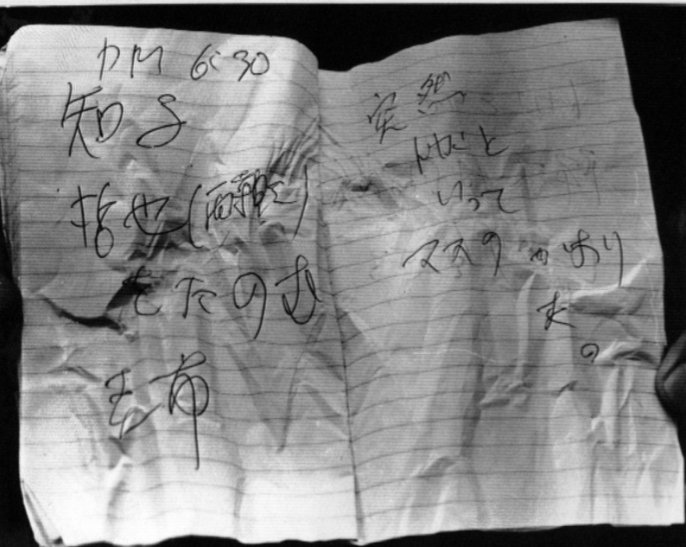 PM 6:30
知子
哲也(両親)
をたのむ
圭市
突然
ドカンと
いって
マスクがおり